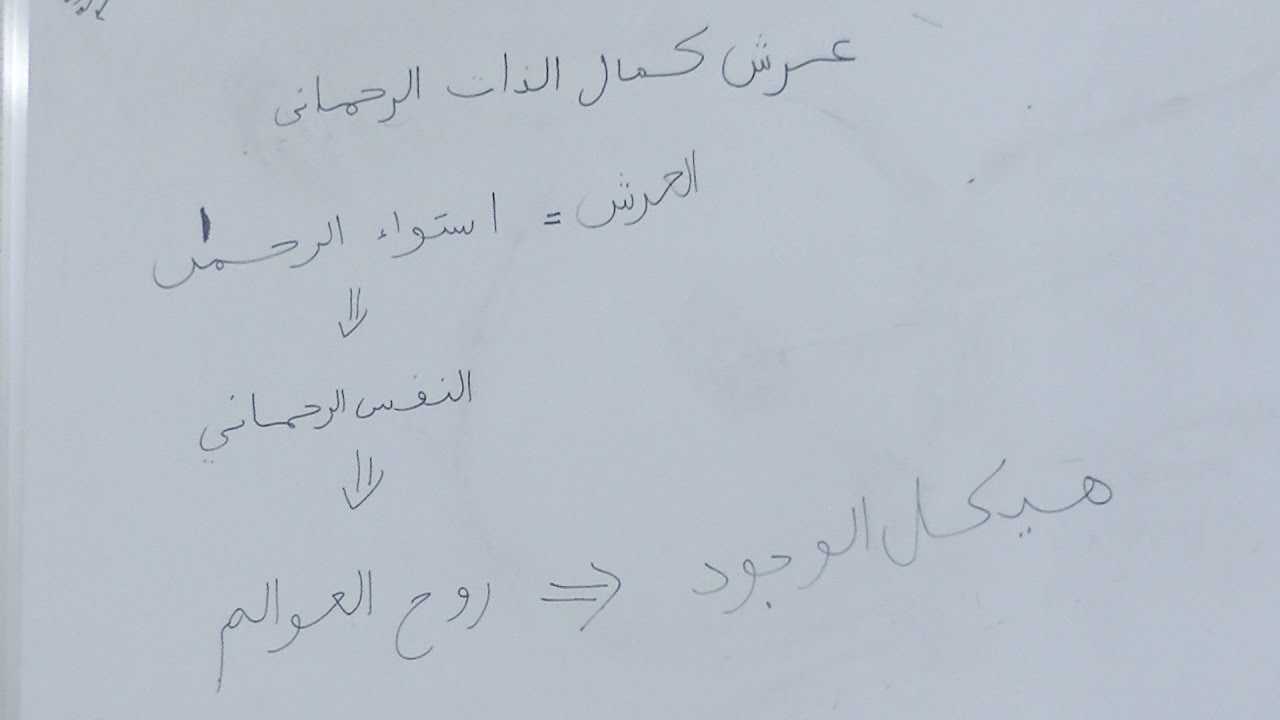 عرش كمال الذات الرحمانى
العرش = استواء الرحمن
⇓
النفس الرحماني
⇓
روح العوالم ⇒ هيكل الوجود